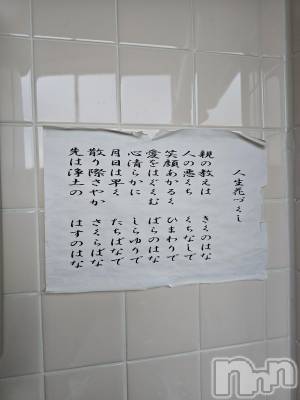 人生花づくし
親の教えは きくのはな
人の悪くち くちなしで
笑顔あかるく ひまわりで
愛をはぐくむ ばらのはな
心清らかに しらゆりで
月日は早く たちばなで
散り際さやか さくらばな
先は浄土の はすのはな
nn